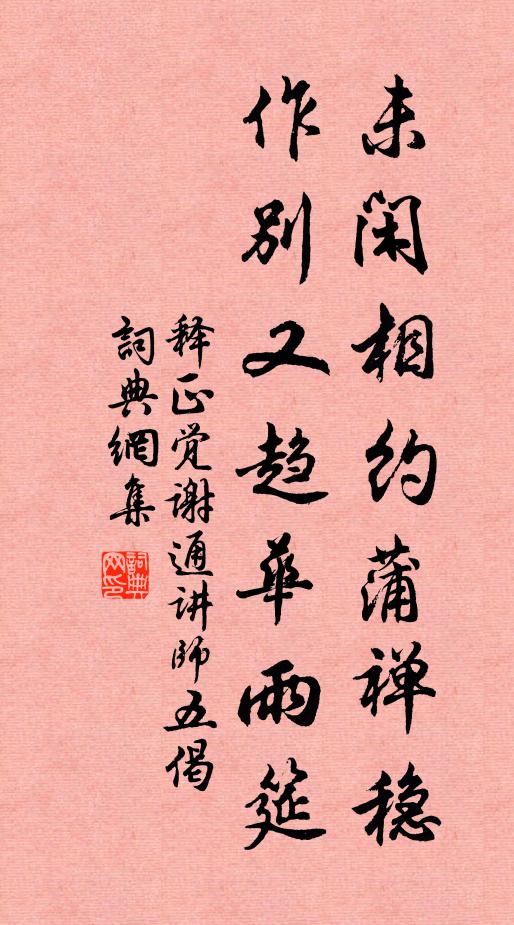 未闲相约蒲禅稳
作别又趋华雨筵
释正觉谢通讲师五偈
詞典網集
詞典网印